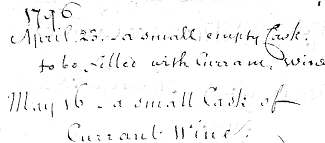 1796
April 23. - a small empty Cask.
to be filled with Currant, Wine
May 16 - a small Cask of
Currant Wine.